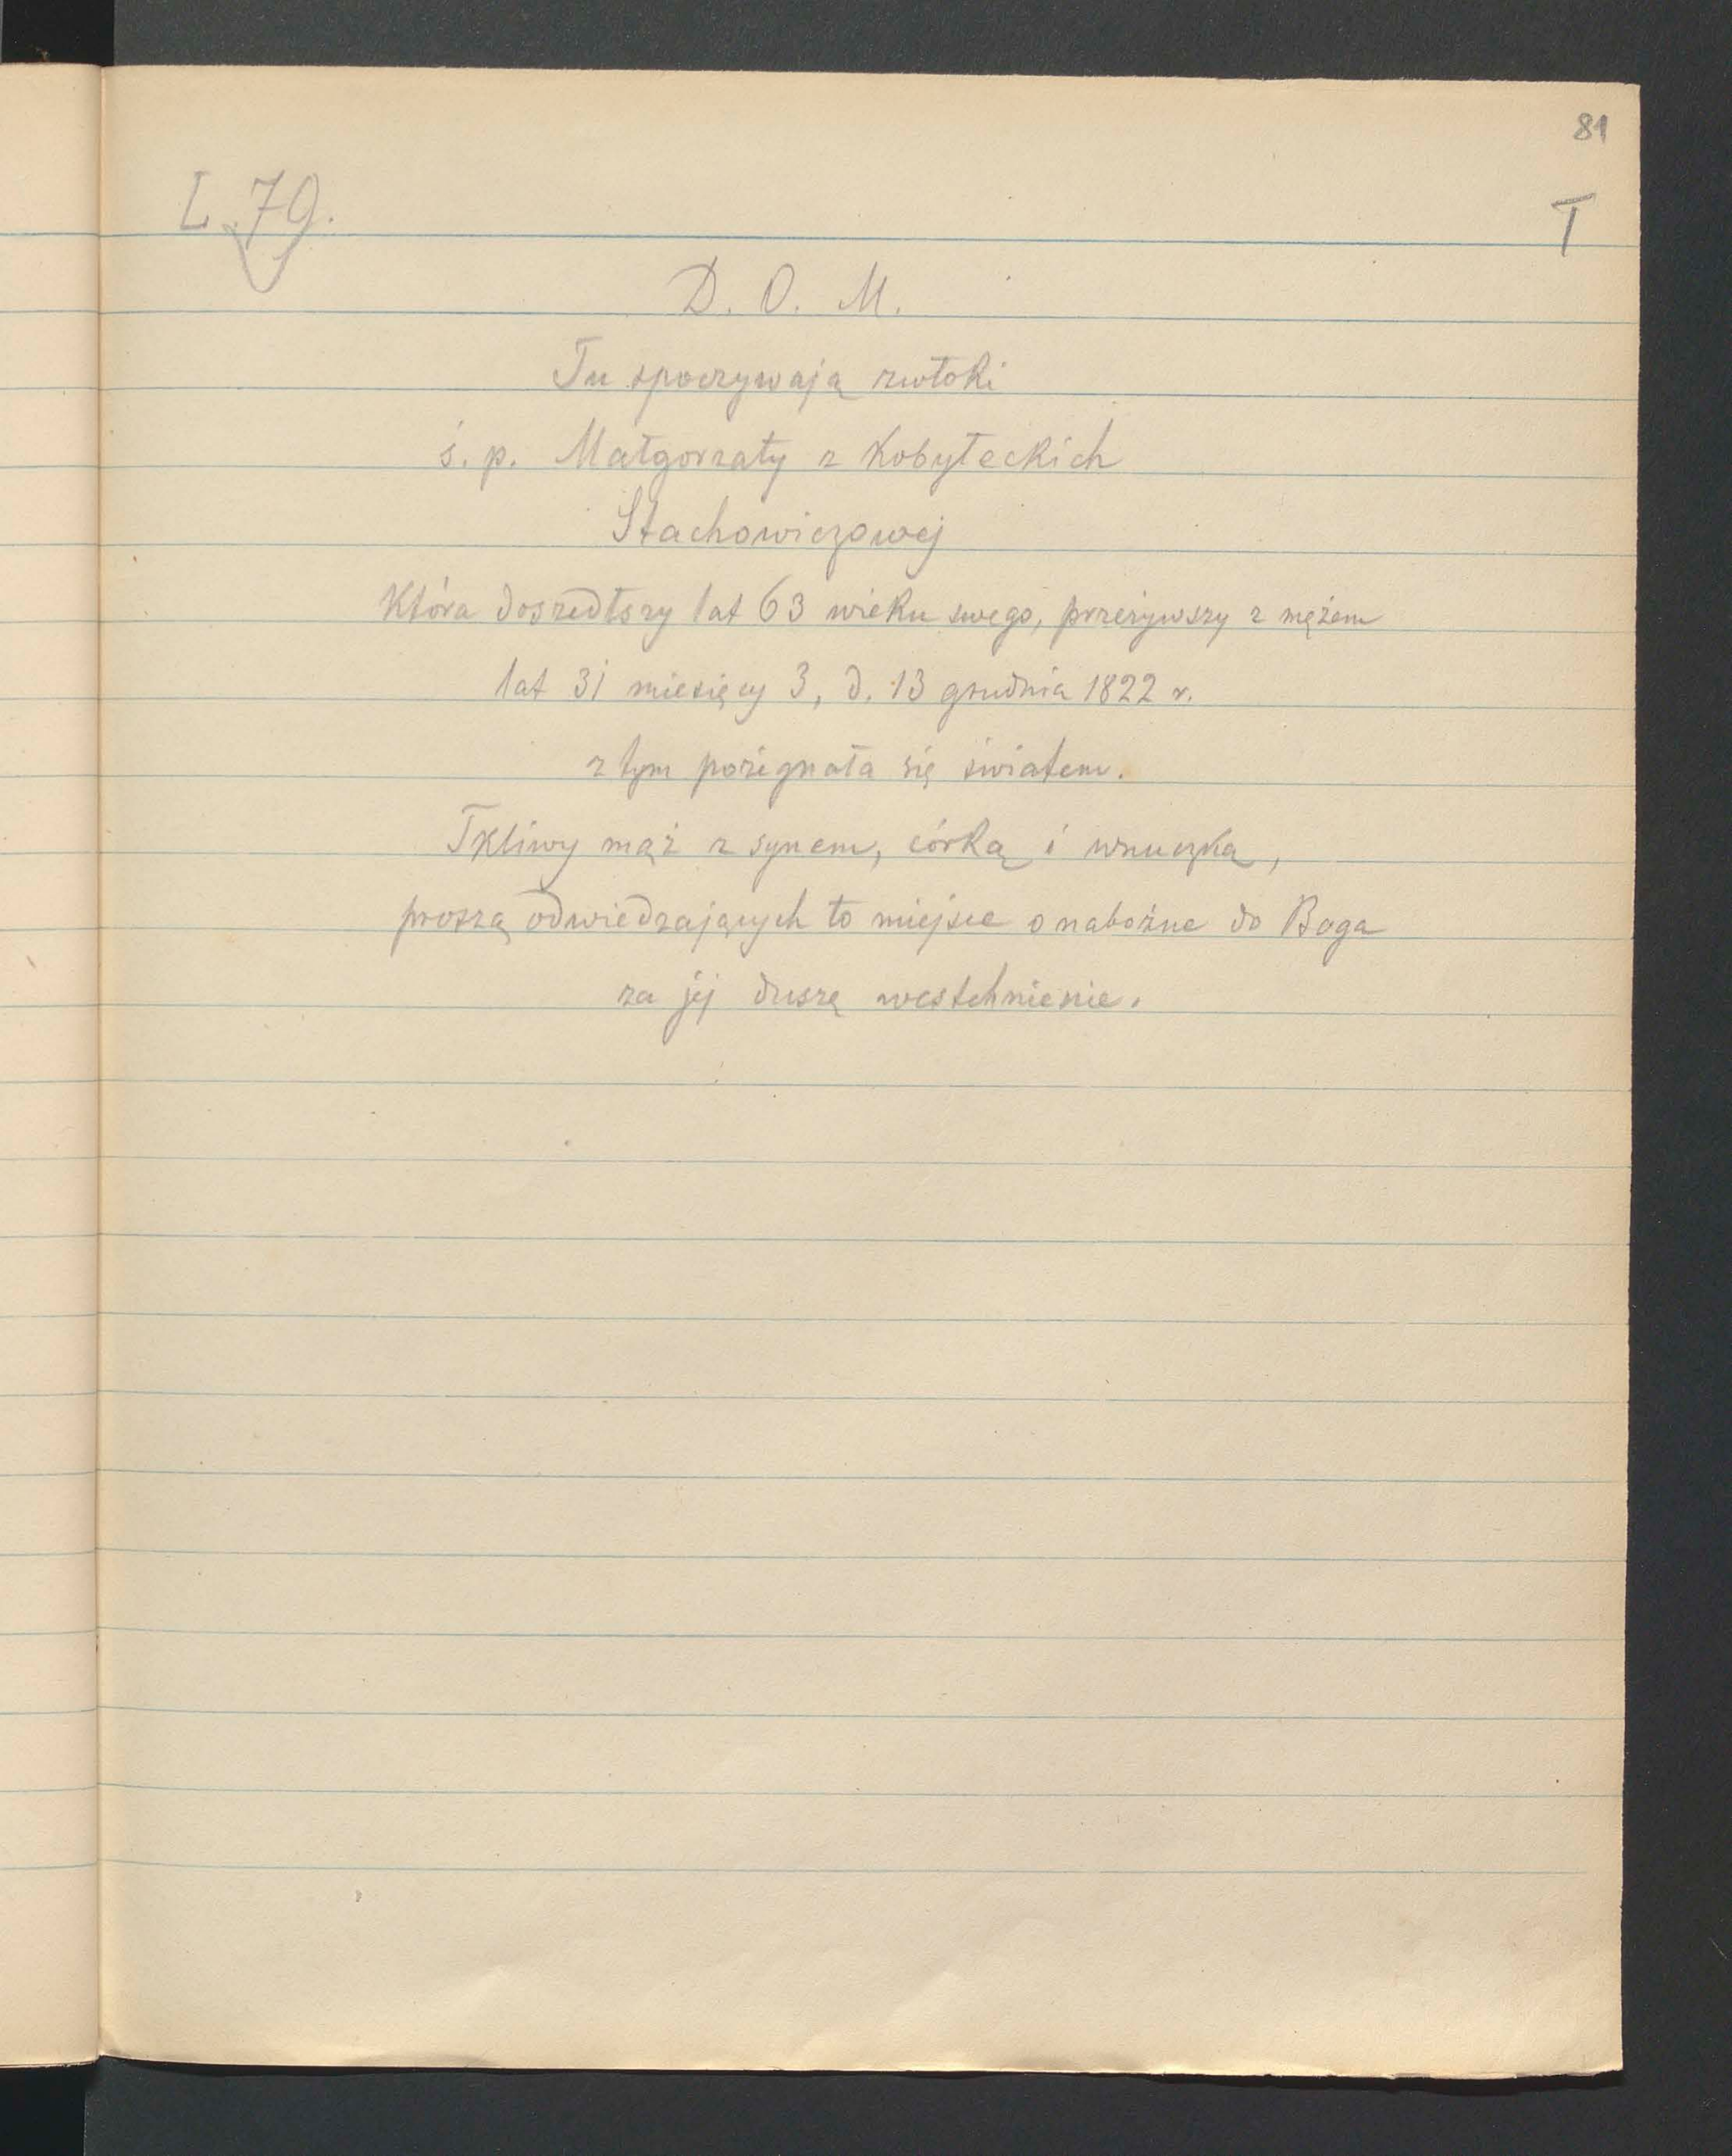 81
L. 79.
T
D. O. M.
Tu spoczywają zwłoki
ś. p. Małgorzaty z Kobyłeckich
Stachowiczowej
Która doszedłszy lat 63 wieku swego, przeżywszy z mężem
lat 31 miesięcy 3, d. 13 grudnia 1822 r.
z tym pożegnała się światem.
Tkliwy mąż z synem, córką i wnuczką,
proszą odwiedzających to miejsce o nabożne do Boga
za jej duszę westchnienie.